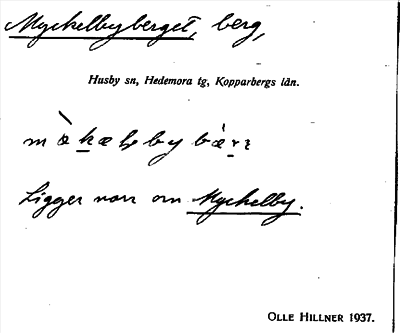 Myckelbyberget, berg,
Husby sn, Hedemora tg, Kopparbergs län.
Ligger norr om Myckelby.
OLLE HILLNER 1937.